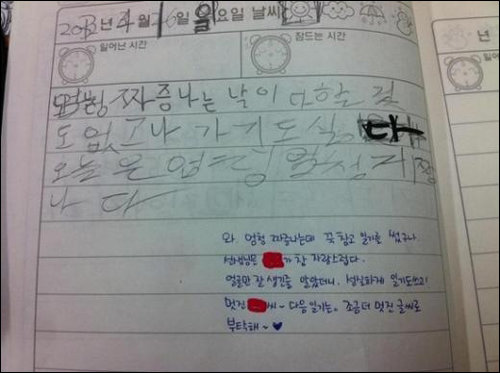 2012년 4월 1일 일요일 날씨
일어난 시간
잠드는 시간
년
일어
엄청 짜증나는 날이다 할 걸
도 없고 나가기도 싫다
오늘은 엄청 엄청 짜증
나다
와 엄청 짜증나는데 꾹 참고 일기를 썼구나
선생님은 가 참 자랑스럽다.
얼굴만 잘 생긴줄 알았더니. 성실하게 일기도쓰고
멋진 씨~ 다음 일기는. 조금더 멋진 글씨로
부탁해~ ♥